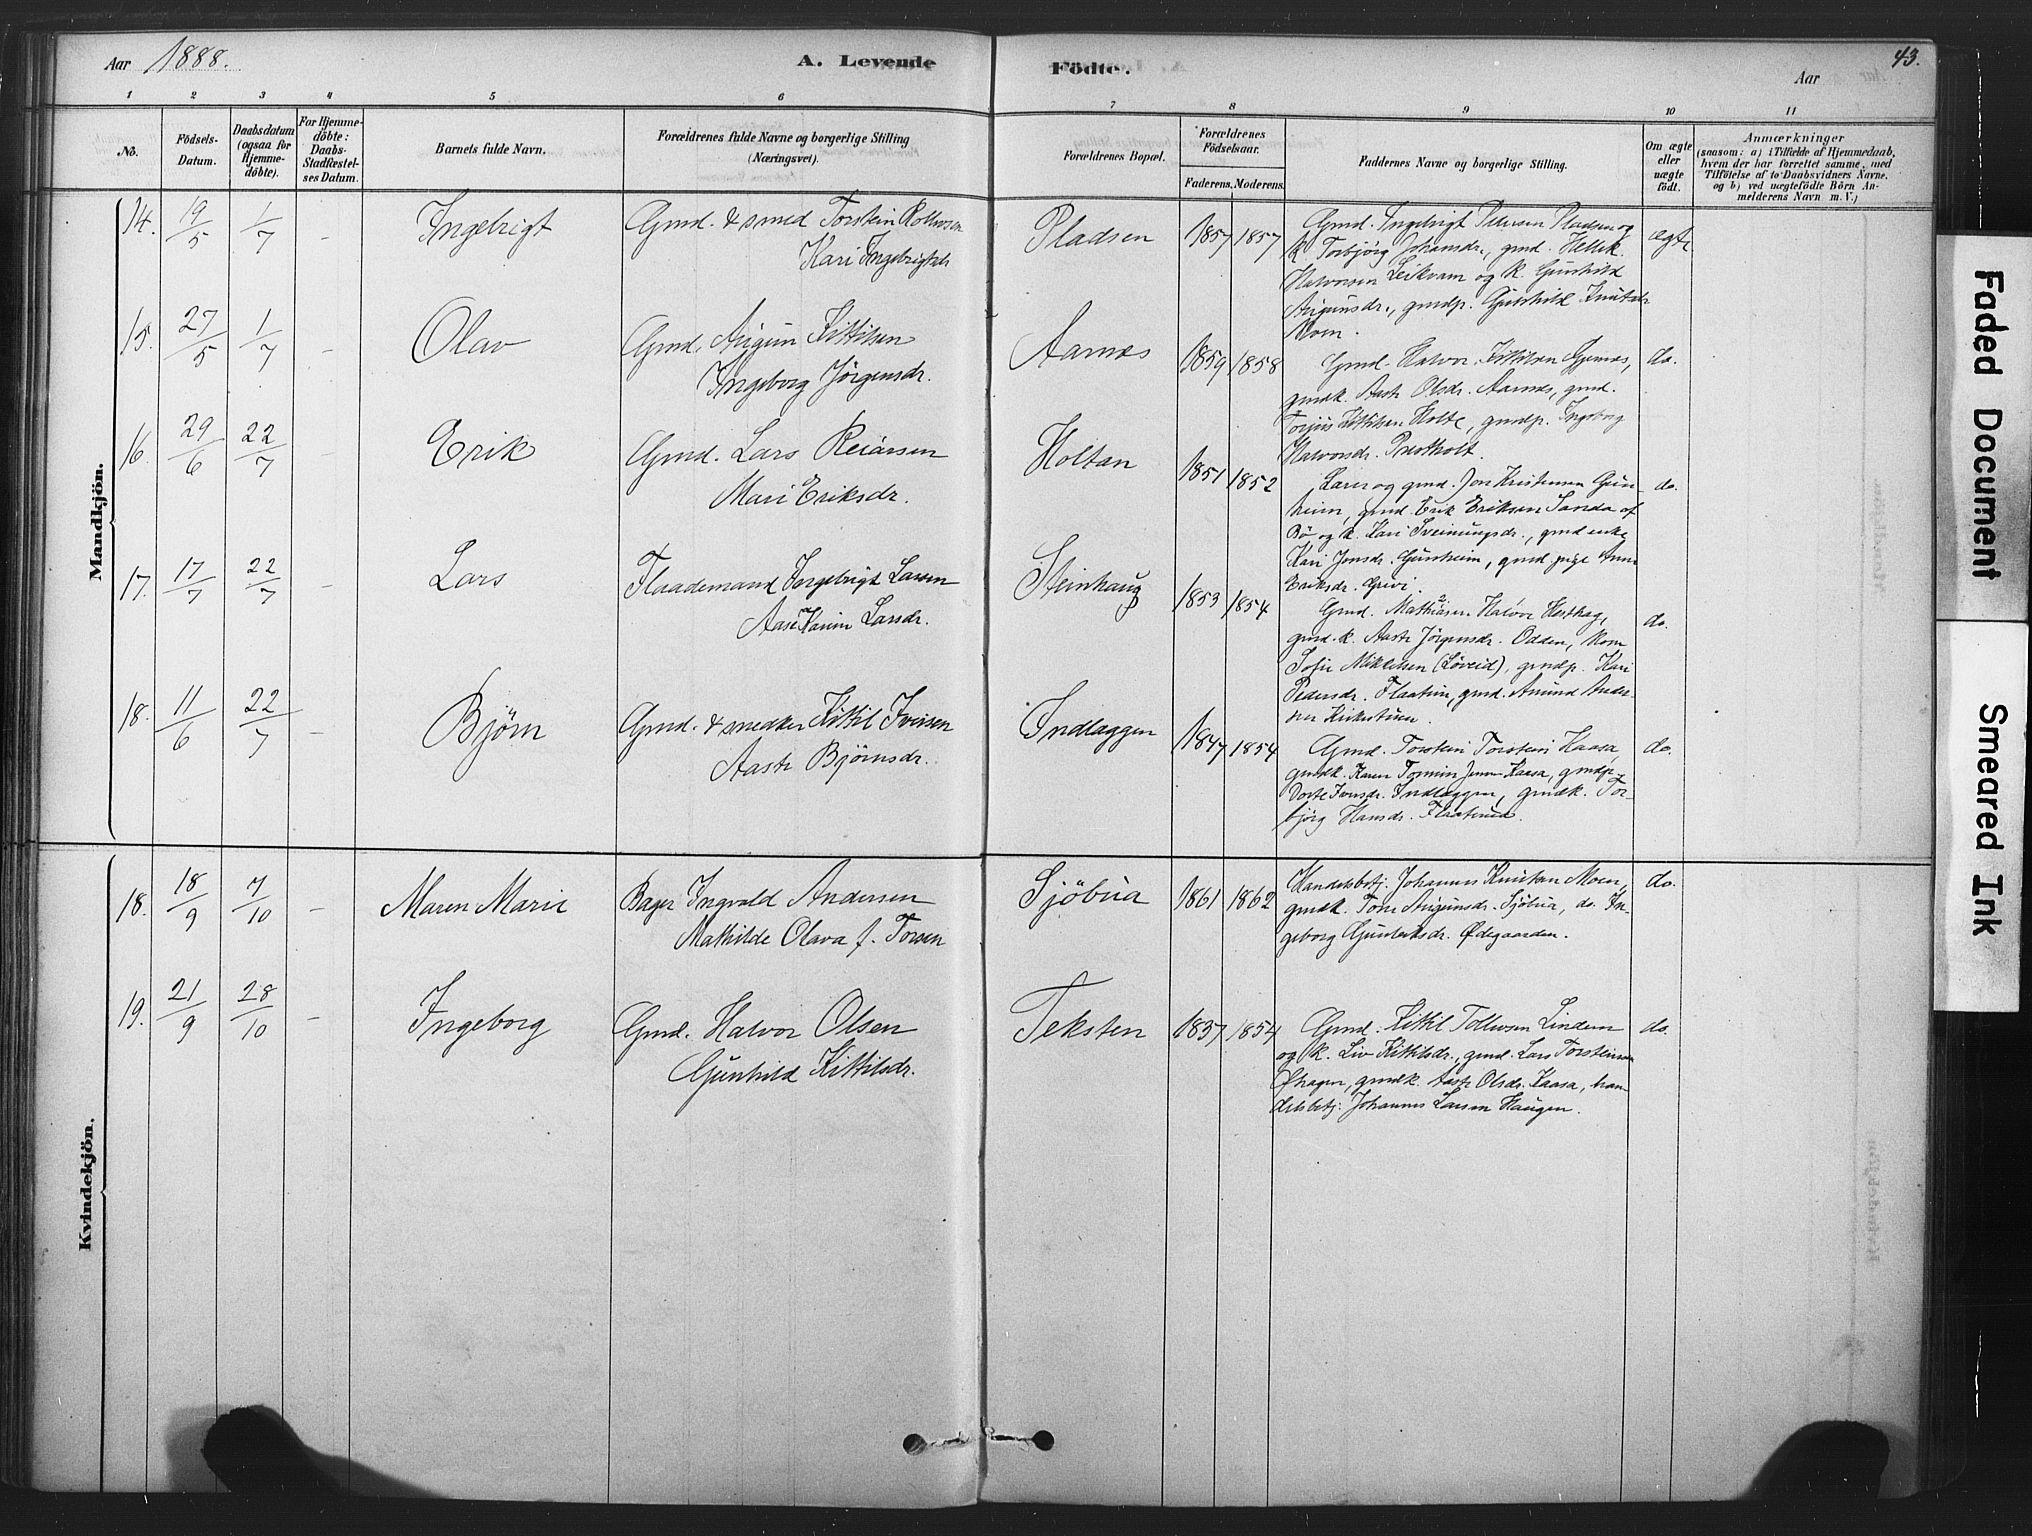 Aar 1888.
A. Levende Fødte.
Aar
43.
1 2 3 4 5 6 7 8 9 10 11
No.
Fødsels-Datum.
Daabsdatum (ogsaa for Hjemmedöbte).
For Hjemmedöbte: Daabs-Stadfæstelses Datum.
Barnets fulde Navn.
Forældrenes fulde Navne og borgerlige Stilling (Næringsvei).
Forældrenes Bopæl.
Forældrenes Födselsaar.
Faderens. Moderens.
Faddernes Navne og borgerlige Stilling.
Om ægte eller uægte födt.
Anmærkninger
(saasom: a) i Tilfælde af Hjemmedaab,
hvem der har forrettet samme, med
Tilföielse af to Daabsvidners Navne,
og b) ved uægtefödte Börn An-
melderens Navn m. V.)
Mandkjön.
14. 19/5 1/7 - Ingebrigt
Gmd. & smed Torstein
Kari Ingebrigtsdr
Pladsen 1857 1857
Gmd. Ingebrigt Petersen Pladsen og
k. Torbjörg Johansdr., gmd. Hellek
Halvorsen Leikvam og k. Gunhild
Augunsdr., gmdp. Gunhild Knutsdr
Moen.
ægte
15. 27/5 1/7 - Olav
Gmd. Augun Kittilsen
Ingeborg Jörgensdr.
Aarnes 1859 1858
Gmd. Halvor Kittilsen Gjernes,
gmdk. Aaste Olsdr. Aarnes, gmd.
Torjus Kittilsen Holte, gmdp. Ingeborg
Halvorsdr. Prestholt.
do.
16. 29/6 22/7 Erik
Gmd. Lars Reiarsen
Mari Eriksdr.
Holtan 1851 1852
Lærer og gmd. Jon Kristensen Gun-
heim, gmd. Erik Eriksen Sanda af
Bö og k. Kari Sveinungsdr., gmd enke
Kari Jonsdr. Gunheim, gmd pige Anne
Eriksdr. Grivi.
do.
17. 17/7 22/7 - Lars
Flaademand Ingebrigt Larsen
Aase Karine Larsdr.
Steinhaug 1853 1854
Gmd. Mathias Halvor Hesthag,
gmd.k. Aaste Jörgensdr. Odden, kone
Sofie Mikkelsen (Löveid), gmdp. Kari
Pedersdr. Flaatin, gmd. Amund Ander-
sen Kirkestuen.
do.
18. 11/6 22/7 - Björn
Gmd. & snedker Kittil Iversen
Aaste Björnsdr.
Indlaggen 1847 1854
Gmd. Torstein Torstens Kaasa,
gmdk. Karen Tomine Jensen Kaasa, gmdp.
Dorte Iversdr. Indlaggen, gmdk. Tor-
björg Hansdr. Flaatin.
do.
Kvindekjön.
18. 18/9 7/10 - Maren Marie
Bager Ingvald Andersen
Mathilde Olava f. Torsen
Sjöbua 1861 1862
Handelsbetj. Johannes Knutsen Moen,
gmdk. Tone Augunsdr. Sjöbua, do. In-
geborg Gunleiksdr. Ødegaarden.
do.
19. 21/9 28/10 - Ingeborg
Gmd. Halvor Olsen
Gunhild Kittilsdr.
Teksten 1837 1854
Gmd. Kittil Tollevsen Lindem
og k. Liv Kittilsdr., gmd. Lars Torsteinsen
Øhagen, gmdk. Aaste Olsdr. Kaasa, han-
delsbetj. Johannes Larsen Haugen.
do.
Faded Document
Smeared Ink